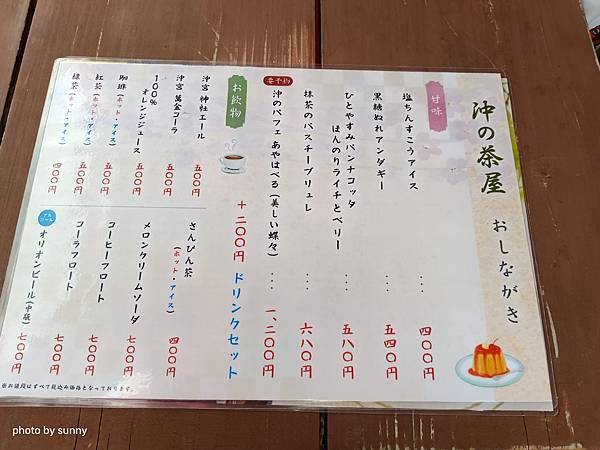 沖の茶屋
おしながき
甘味
塩ちんすこうアイス ・・・ 四〇〇円
黒糖ぬれアンダギー ・・・ 五四〇円
ひとやすみパンナコッタ
ほんのりライチとベリー ・・・ 五八〇円
抹茶のバスチーブリュレ ・・・ 六八〇円
要予約
沖のパフェ あやはべる(美しい蝶々) ・・・ 一、二〇〇円
お飲物
+二〇〇円 ドリンクセット
沖宮 神社エール 五〇〇円
沖宮 萬金コーラ 五〇〇円
100%
オレンジジュース 五〇〇円
珈琲(ホット・アイス) 五〇〇円
紅茶(ホット・アイス) 五〇〇円
緑茶(ホット・アイス) 四〇〇円
さんぴん茶
(ホット・アイス) 四〇〇円
メロンクリームソーダ 七〇〇円
コーヒーフロート 七〇〇円
コーラフロート 七〇〇円
アルコール
オリオンビール(中瓶) 七〇〇円
※お値段はすべて税込み価格となっております。
photo by sunny